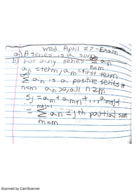 Wed April 27 - Exam
a) A series is a sum
b) For any series ∑ an
an = term, am + 1st term
∑ an is a positive series if
an > 0, all n ≥ m
Sj = am + am+1 + ... am+j-1
= ∑ an = jth partial sum
n=m
Scanned by CamScanner